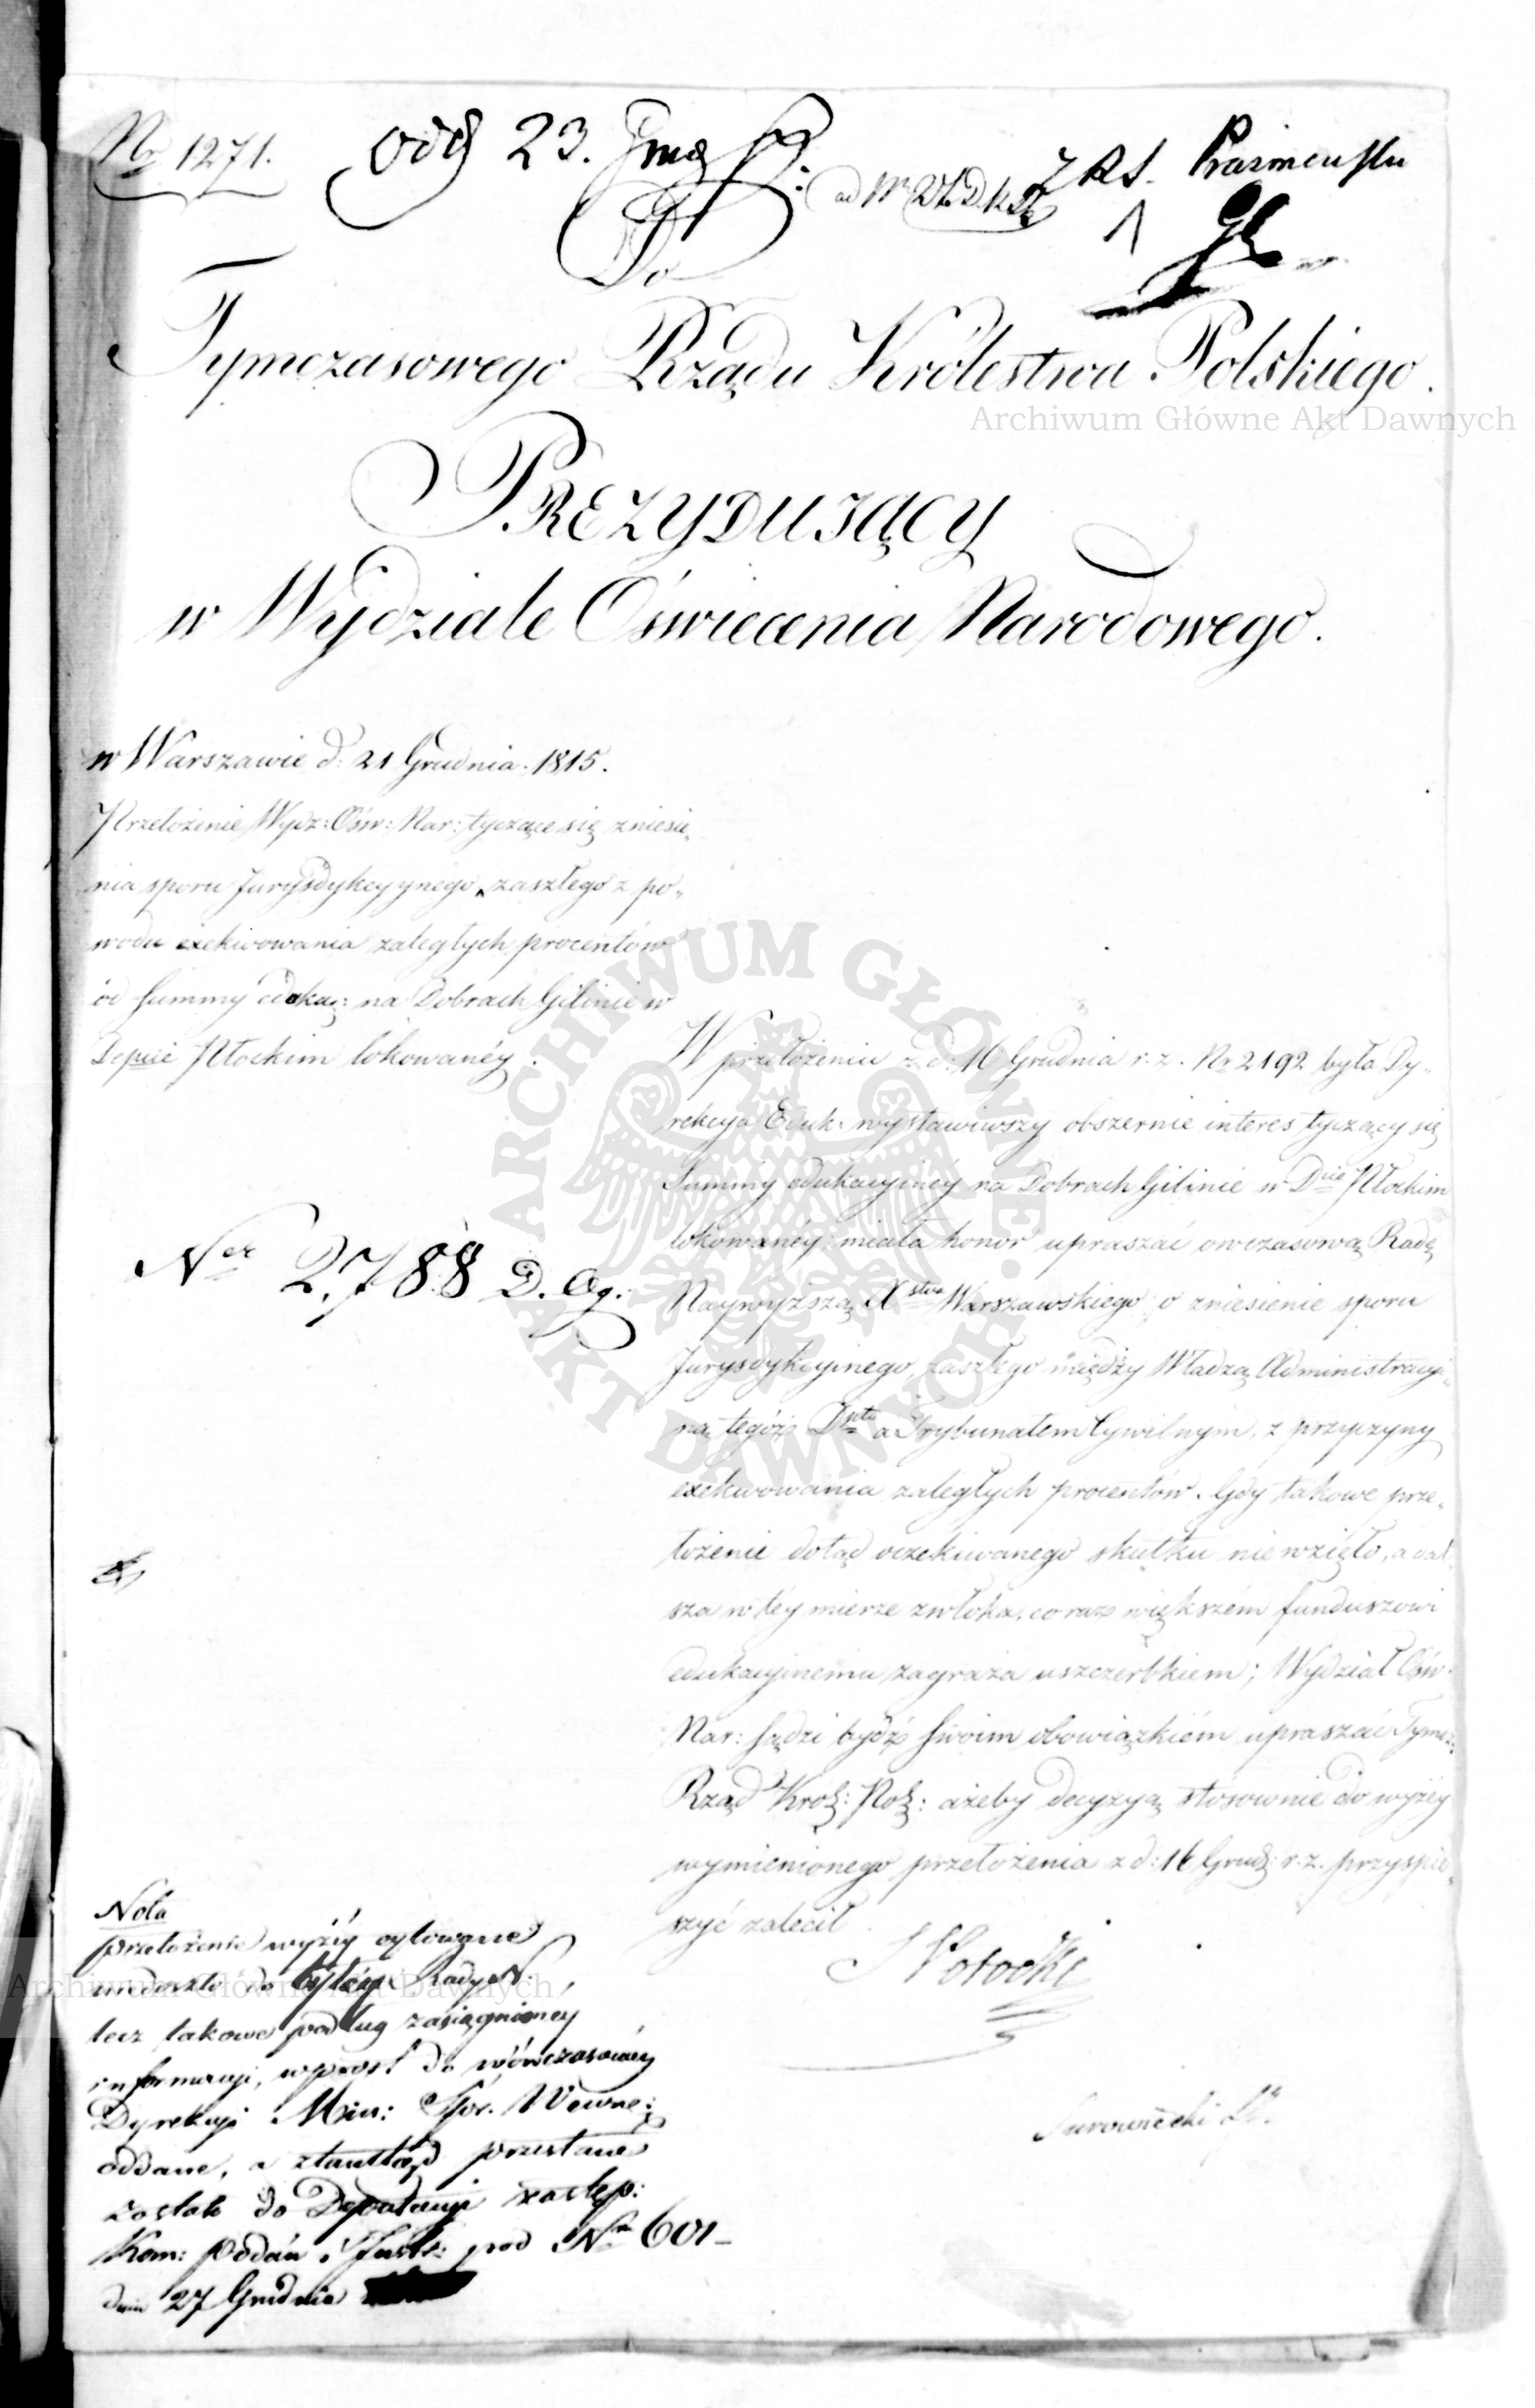 Nr 1271.
odd 23.
ad Nr
z RS. Prażmowsk
1
Do
Tymczasowego Rządu Królestwa Polskiego.
Archiwum Główne Akt Dawnych
PREZYDUJĄCY
w Wydziale Oświecenia Narodowego.
w Warszawie d: 21 Grudnia. 1815.
Przełożenie Wydz: Ośw: Nar: tyczące się zniesie„
nia sporu Jurysdykcyynego, zaszłego z po„
wodu exekwowania zaległych procentów
od Summy edukac: na Dobrach Gilinie w
Depcie Płockim lokowanéy.
Ner 2,788 D. Og:
W przełożeniu z d: 16 Grudnia r. z. Nr 2192 była Dy„
rekcya Eduk: wystawiwszy obszernie interes tyczący się
Summy edukacyinéy na Dobrach Gilinie w Dcie Płockim
lokowanéy; miała honor upraszać owczasową Radę
Naywyższą Xstwa Warszawskiego o zniesienie sporu
Jurysdykcyinego, zaszłego między Władzą Administracyi„
ną tegóż Dptu a Trybunałem Cywilnym, z przyczyny
exekwowania zaległych procentów. Gdy takowe prze„
łożenie dotąd oczekiwanego skutku nie wzięło, a dal„
sza w téy mierze zwłoka, coraz większém funduszowi
edukacyinemu zagraża uszczerbkiem; Wydział Ośw:
Nar: sądzi bydź swoim obowiązkiém upraszać Tymcz:
Rząd Król: Pol: ażeby decyzyą stósownie do wyżéy
wymienionego przełożenia z d: 16 Grud: r. z. przyspie„
szyć zalecił.
S Potocki
Surowiecki
Nota
przełożenie wyżéy cytowane
niedoszło do byłéy Rady N.
lecz takowe podług zasiągnionéy
informacyi, wprost do wówczasowéy
Dyrekcyi Min: Spr. Wewnę:
oddane, a ztamtąd przesłane
zostało do Deputacyi zastęp:
Kom: Podań i Instr: pod Nr 601—
dnia 27 Grudnia
Archiwum Główne Akt Dawnych
ARCHIWUM GŁÓWNE AKT DAWNYCH